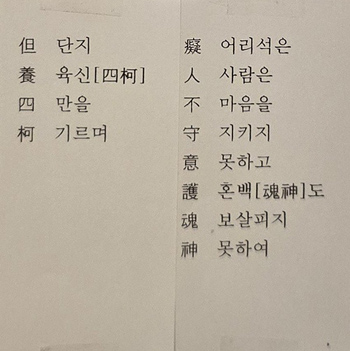 癡 어리석은
人 사람은
不 마음을
守 지키지
意 못하고
護 혼백[魂神]도
魂 보살피지
神 못하여
但 단지
養 육신[四柯]
四 만을
柯 기르며